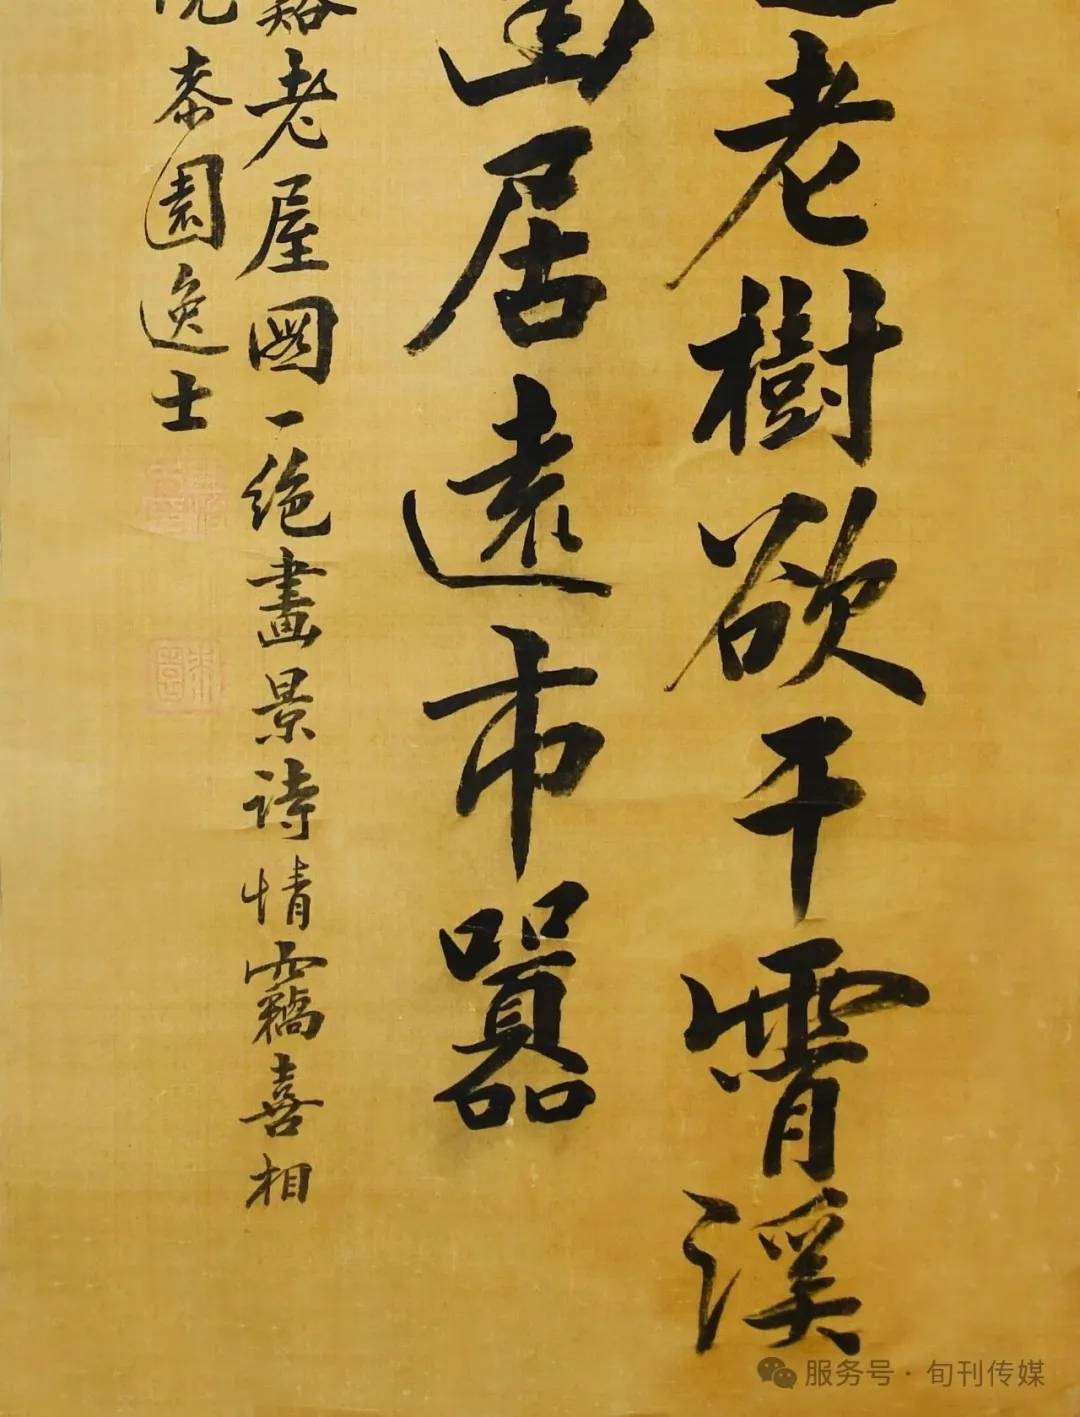 老樹欲干霄溪
居遠市囂
谿老屋圖一絕畫景詩情竊喜相
桼園逸士
服务号 · 旬刊传媒